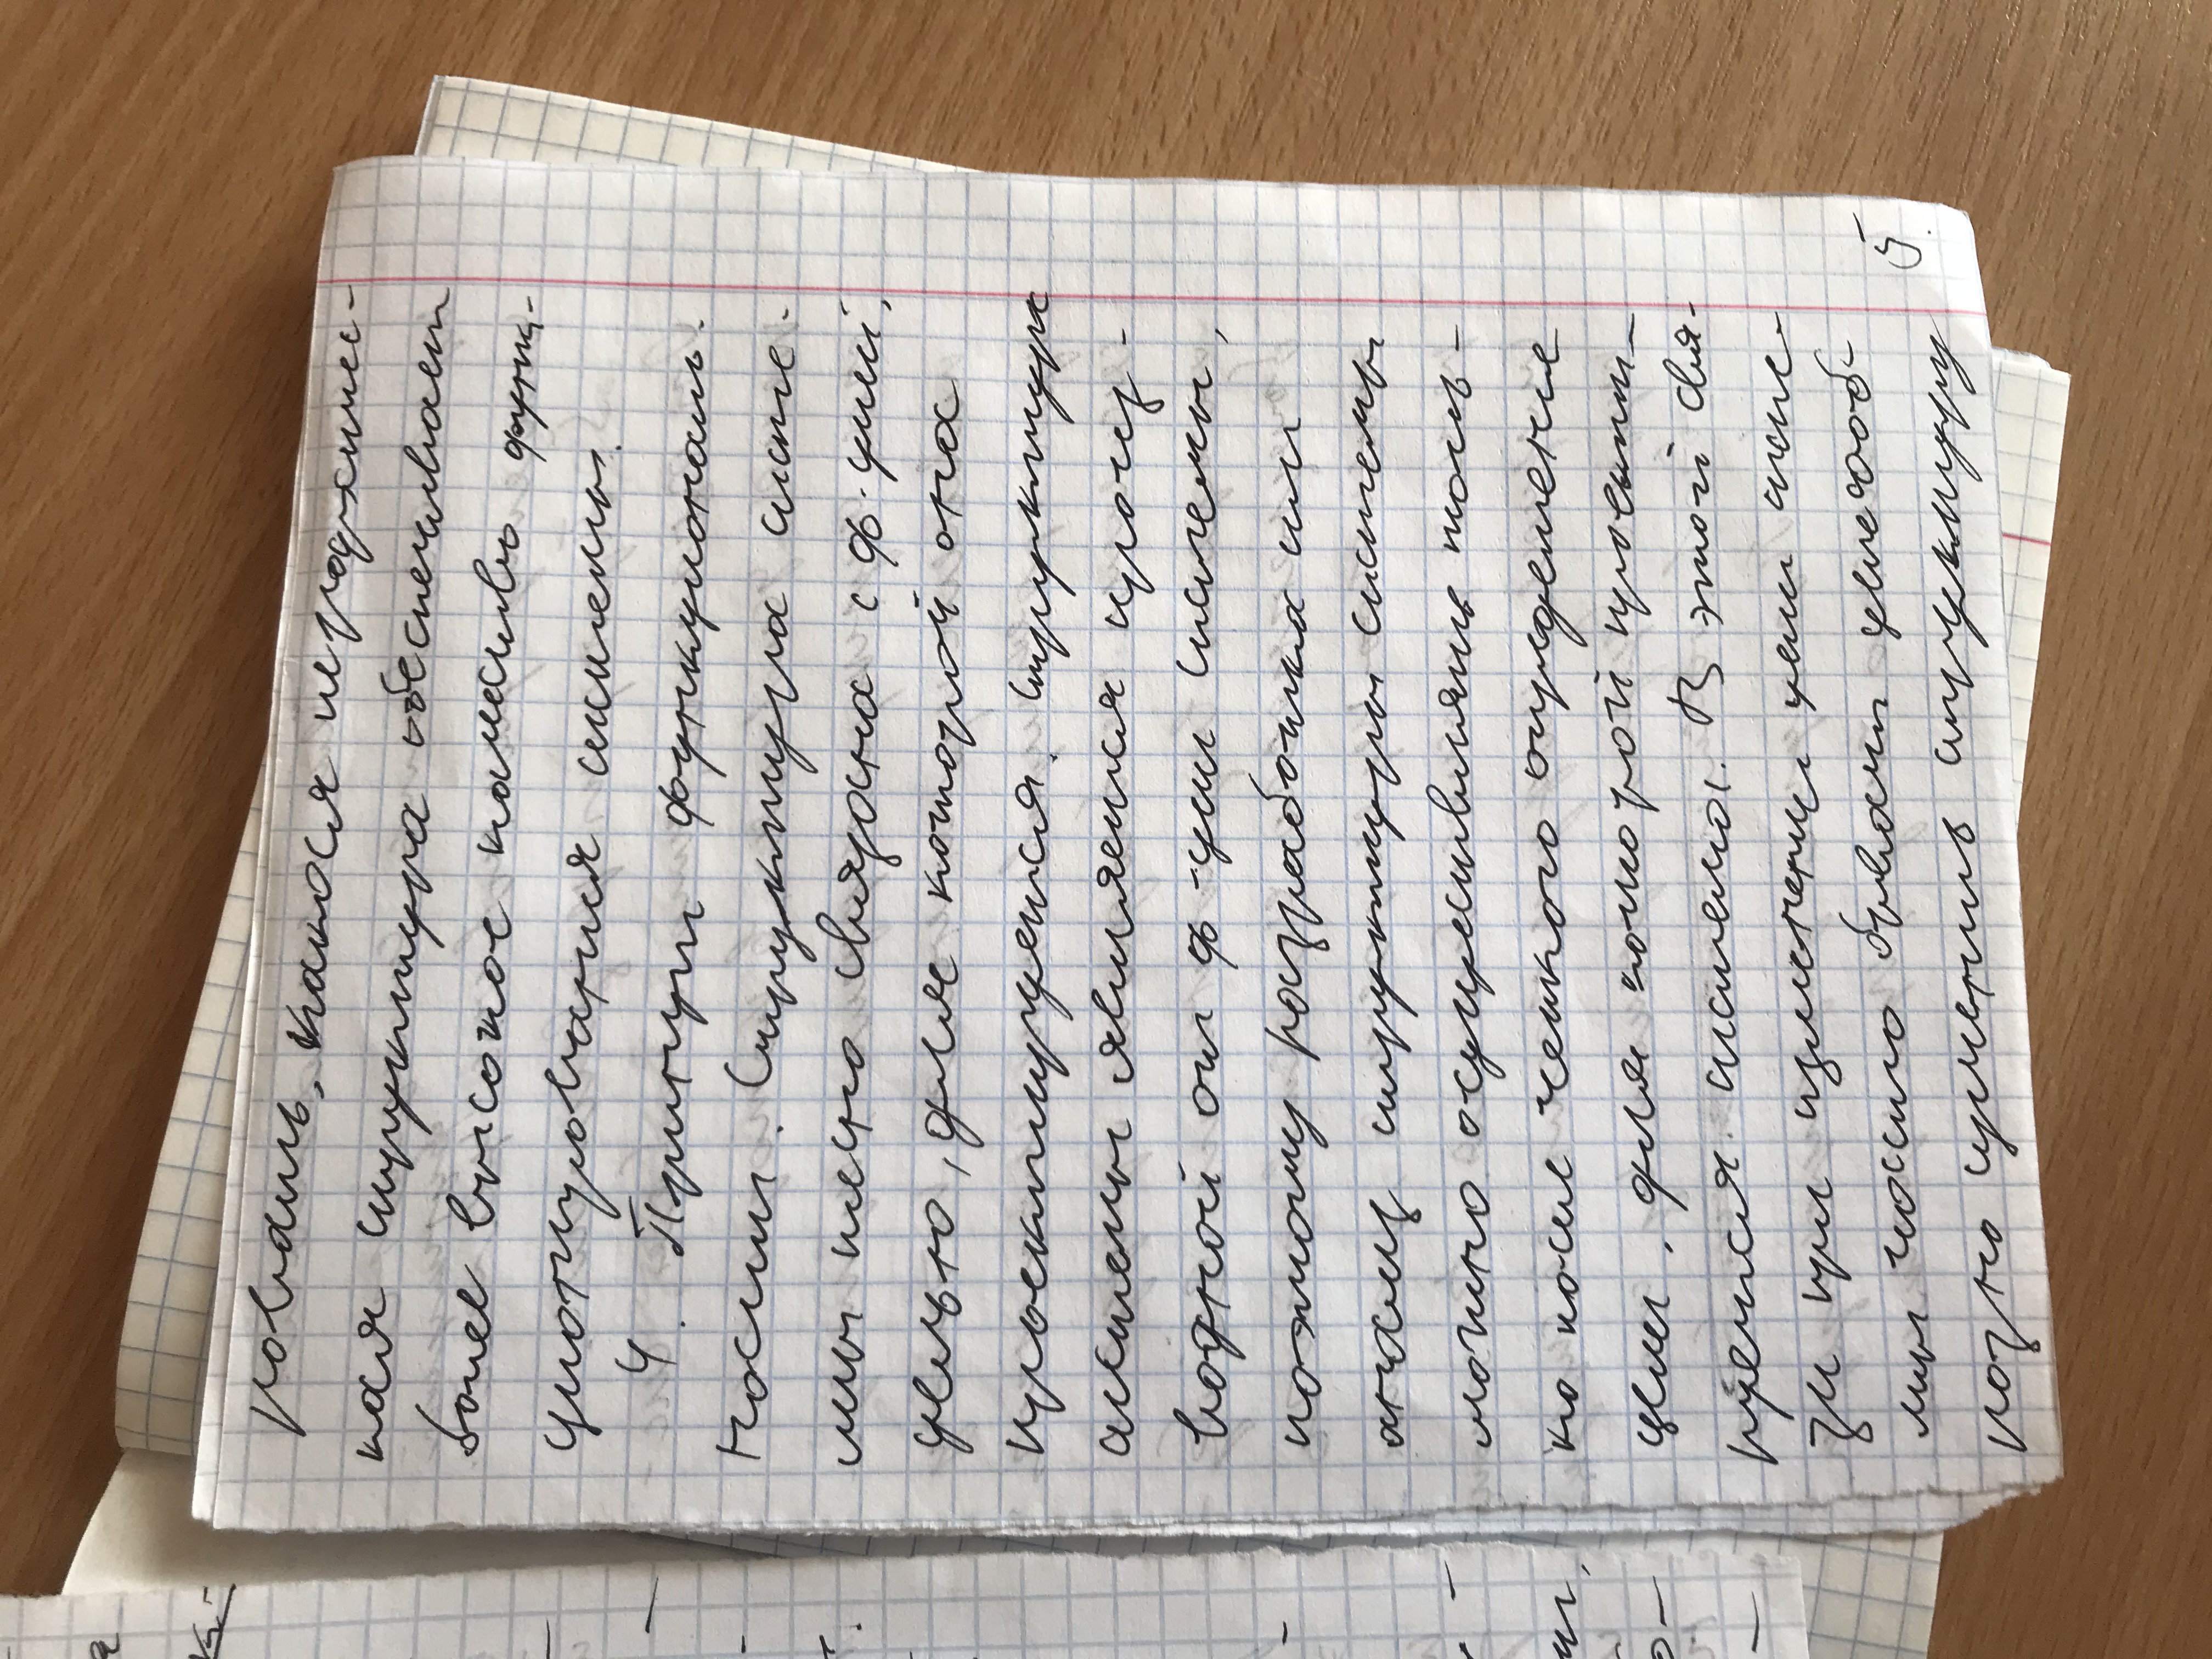 ровать, какая иерархичес-
кая структура обеспечивает
более высокое качество функ-
ционирования системы.
4. Принцип функциональ-
ности. Структура систе-
мы тесно связана с ф-цией,
целью, для которой она
проектируется. Структура
системы является произ-
водной от ф-ции системы,
поэтому разработка или
анализ структуры системы
можно осуществлять толь-
ко после четкого определения
цели, для которой проекти-
руется система. В этой свя-
зи при изменении цели систе-
мы часто бывает целесооб-
разно изменить структуру
5.